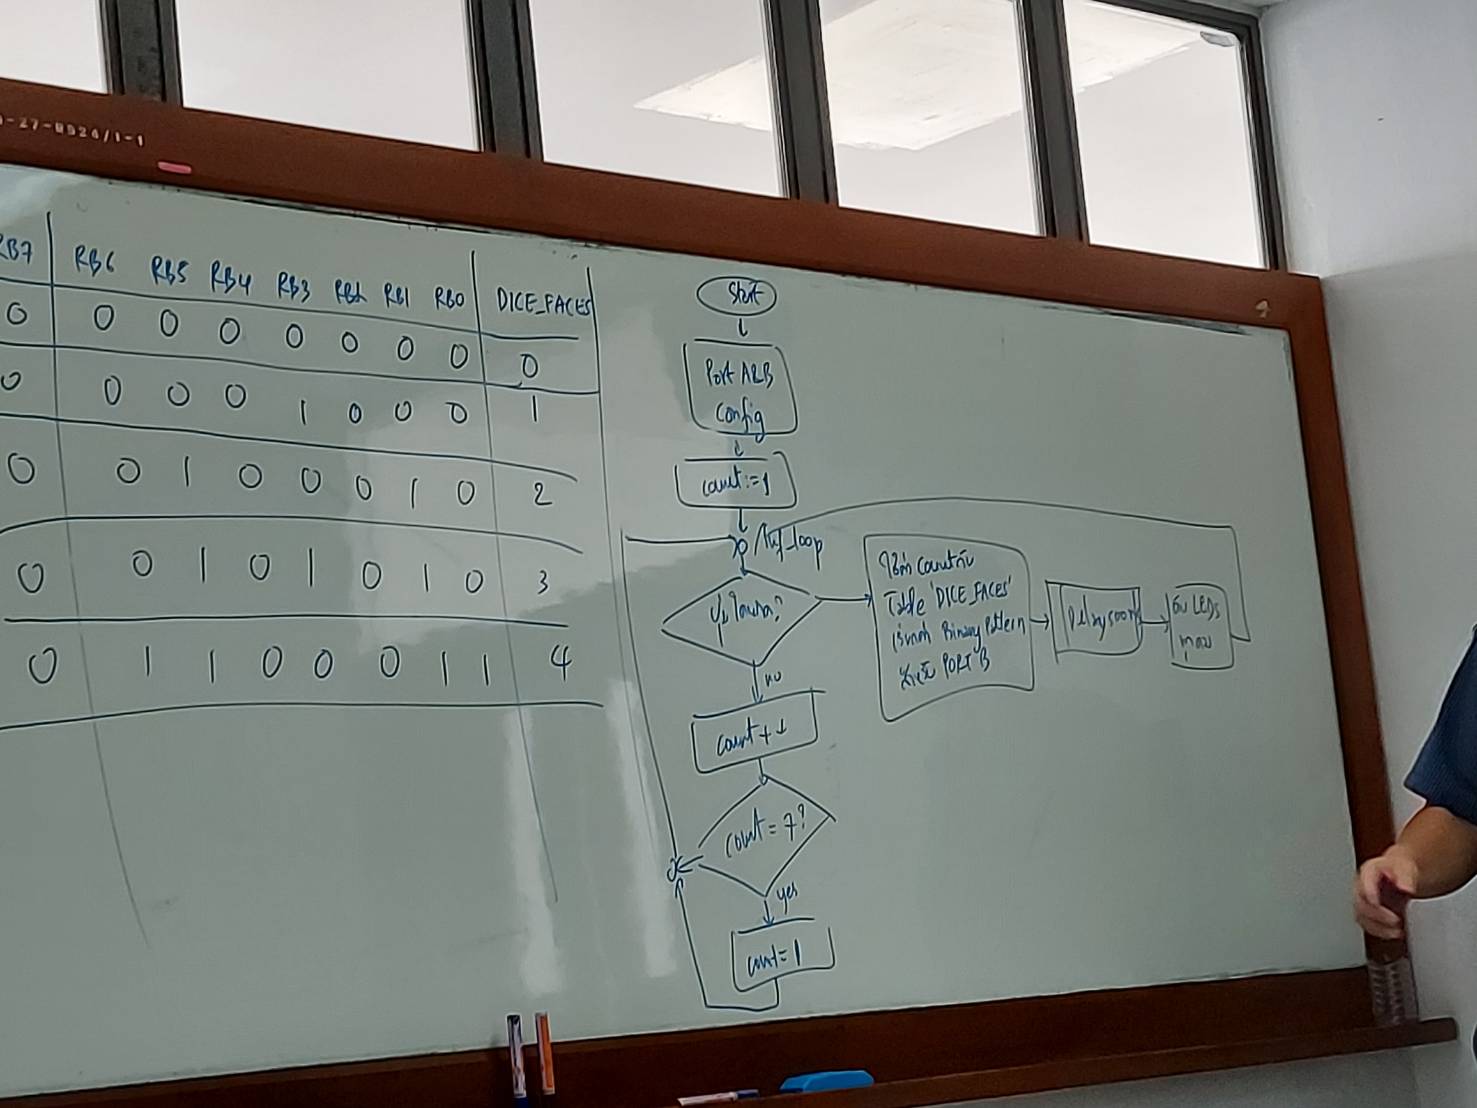 RB7 RB6 RB5 RB4 RB3 RB2 RB1 RB0 DICE_FACES
0 0 0 0 0 0 0 0 0
0 0 0 0 1 0 0 0 1
0 0 1 0 0 0 1 0 2
0 0 1 0 1 0 1 0 3
0 1 1 0 0 0 1 1 4
Start
Port A&B
Config
count:=1
loop
no
count + 1
count = 7?
yes
count = 1
Table 'DICE_FACES'
Binary Pattern
PORT B
Delay
LEDs